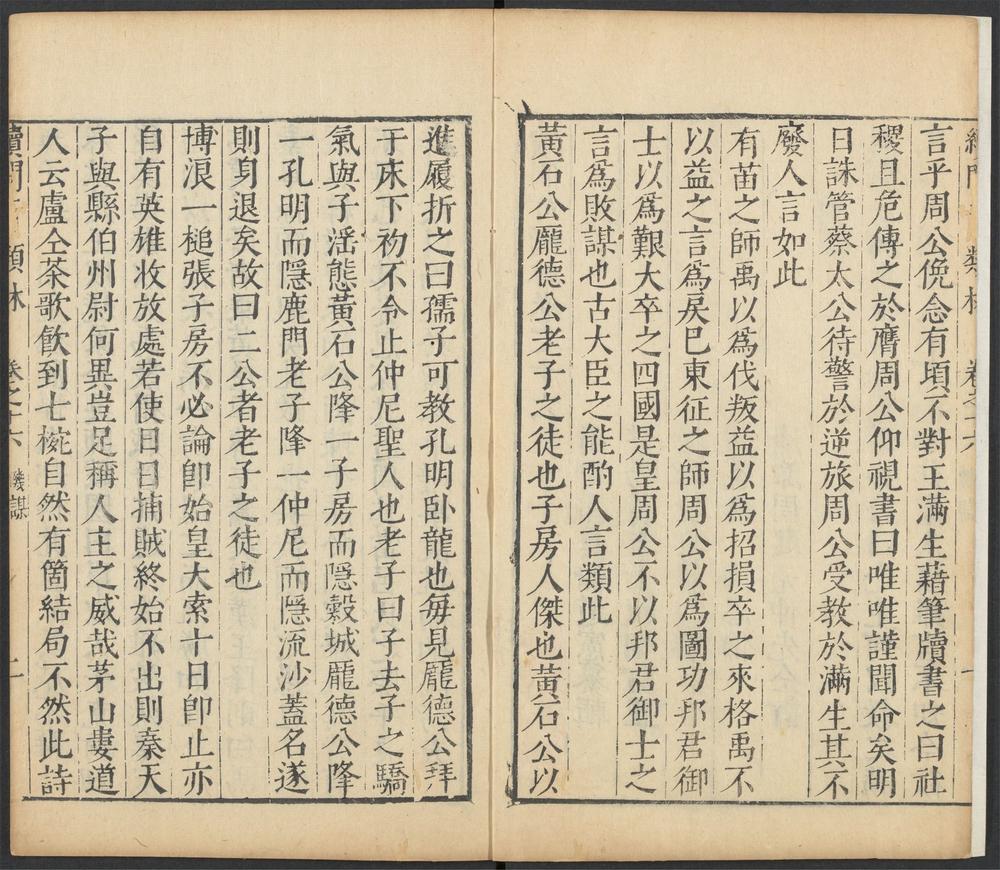 言乎周公俛念有頃不對王滿生藉筆牘書之曰社
稷且危傳之於膺周公仰視書曰唯唯謹聞命矣明
日誅管蔡太公待警於逆旅周公受教於滿生其不
廢人言如此
有苗之師禹以為伐叛益以為招損卒之來格禹不
以益之言為戾巳東征之師周公以為圖功邦君御
士以為艱大卒之四國是皇周公不以邦君御士之
言為敗謀也古大臣之能酌人言類此
黃石公龐德公老子之徒也子房人傑也黃石公以
進履折之曰孺子可教孔明臥龍也每見龐德公拜
于床下初不令止仲尼聖人也老子曰子去子之驕
氣與子淫態黃石公降一子房而隱穀城龐德公降
一孔明而隱鹿門老子降一仲尼而隱流沙蓋名遂
則身退矣故曰二公者老子之徒也
博浪一槌張子房不必論卽始皇大索十日卽止亦
自有英雄收放處若使日日捕賊終始不出則秦天
子與縣伯州尉何異豈足稱人主之威哉茅山婁道
人云盧仝茶歌飲到七椀自然有箇結局不然此詩
卷之十六 機謀 二